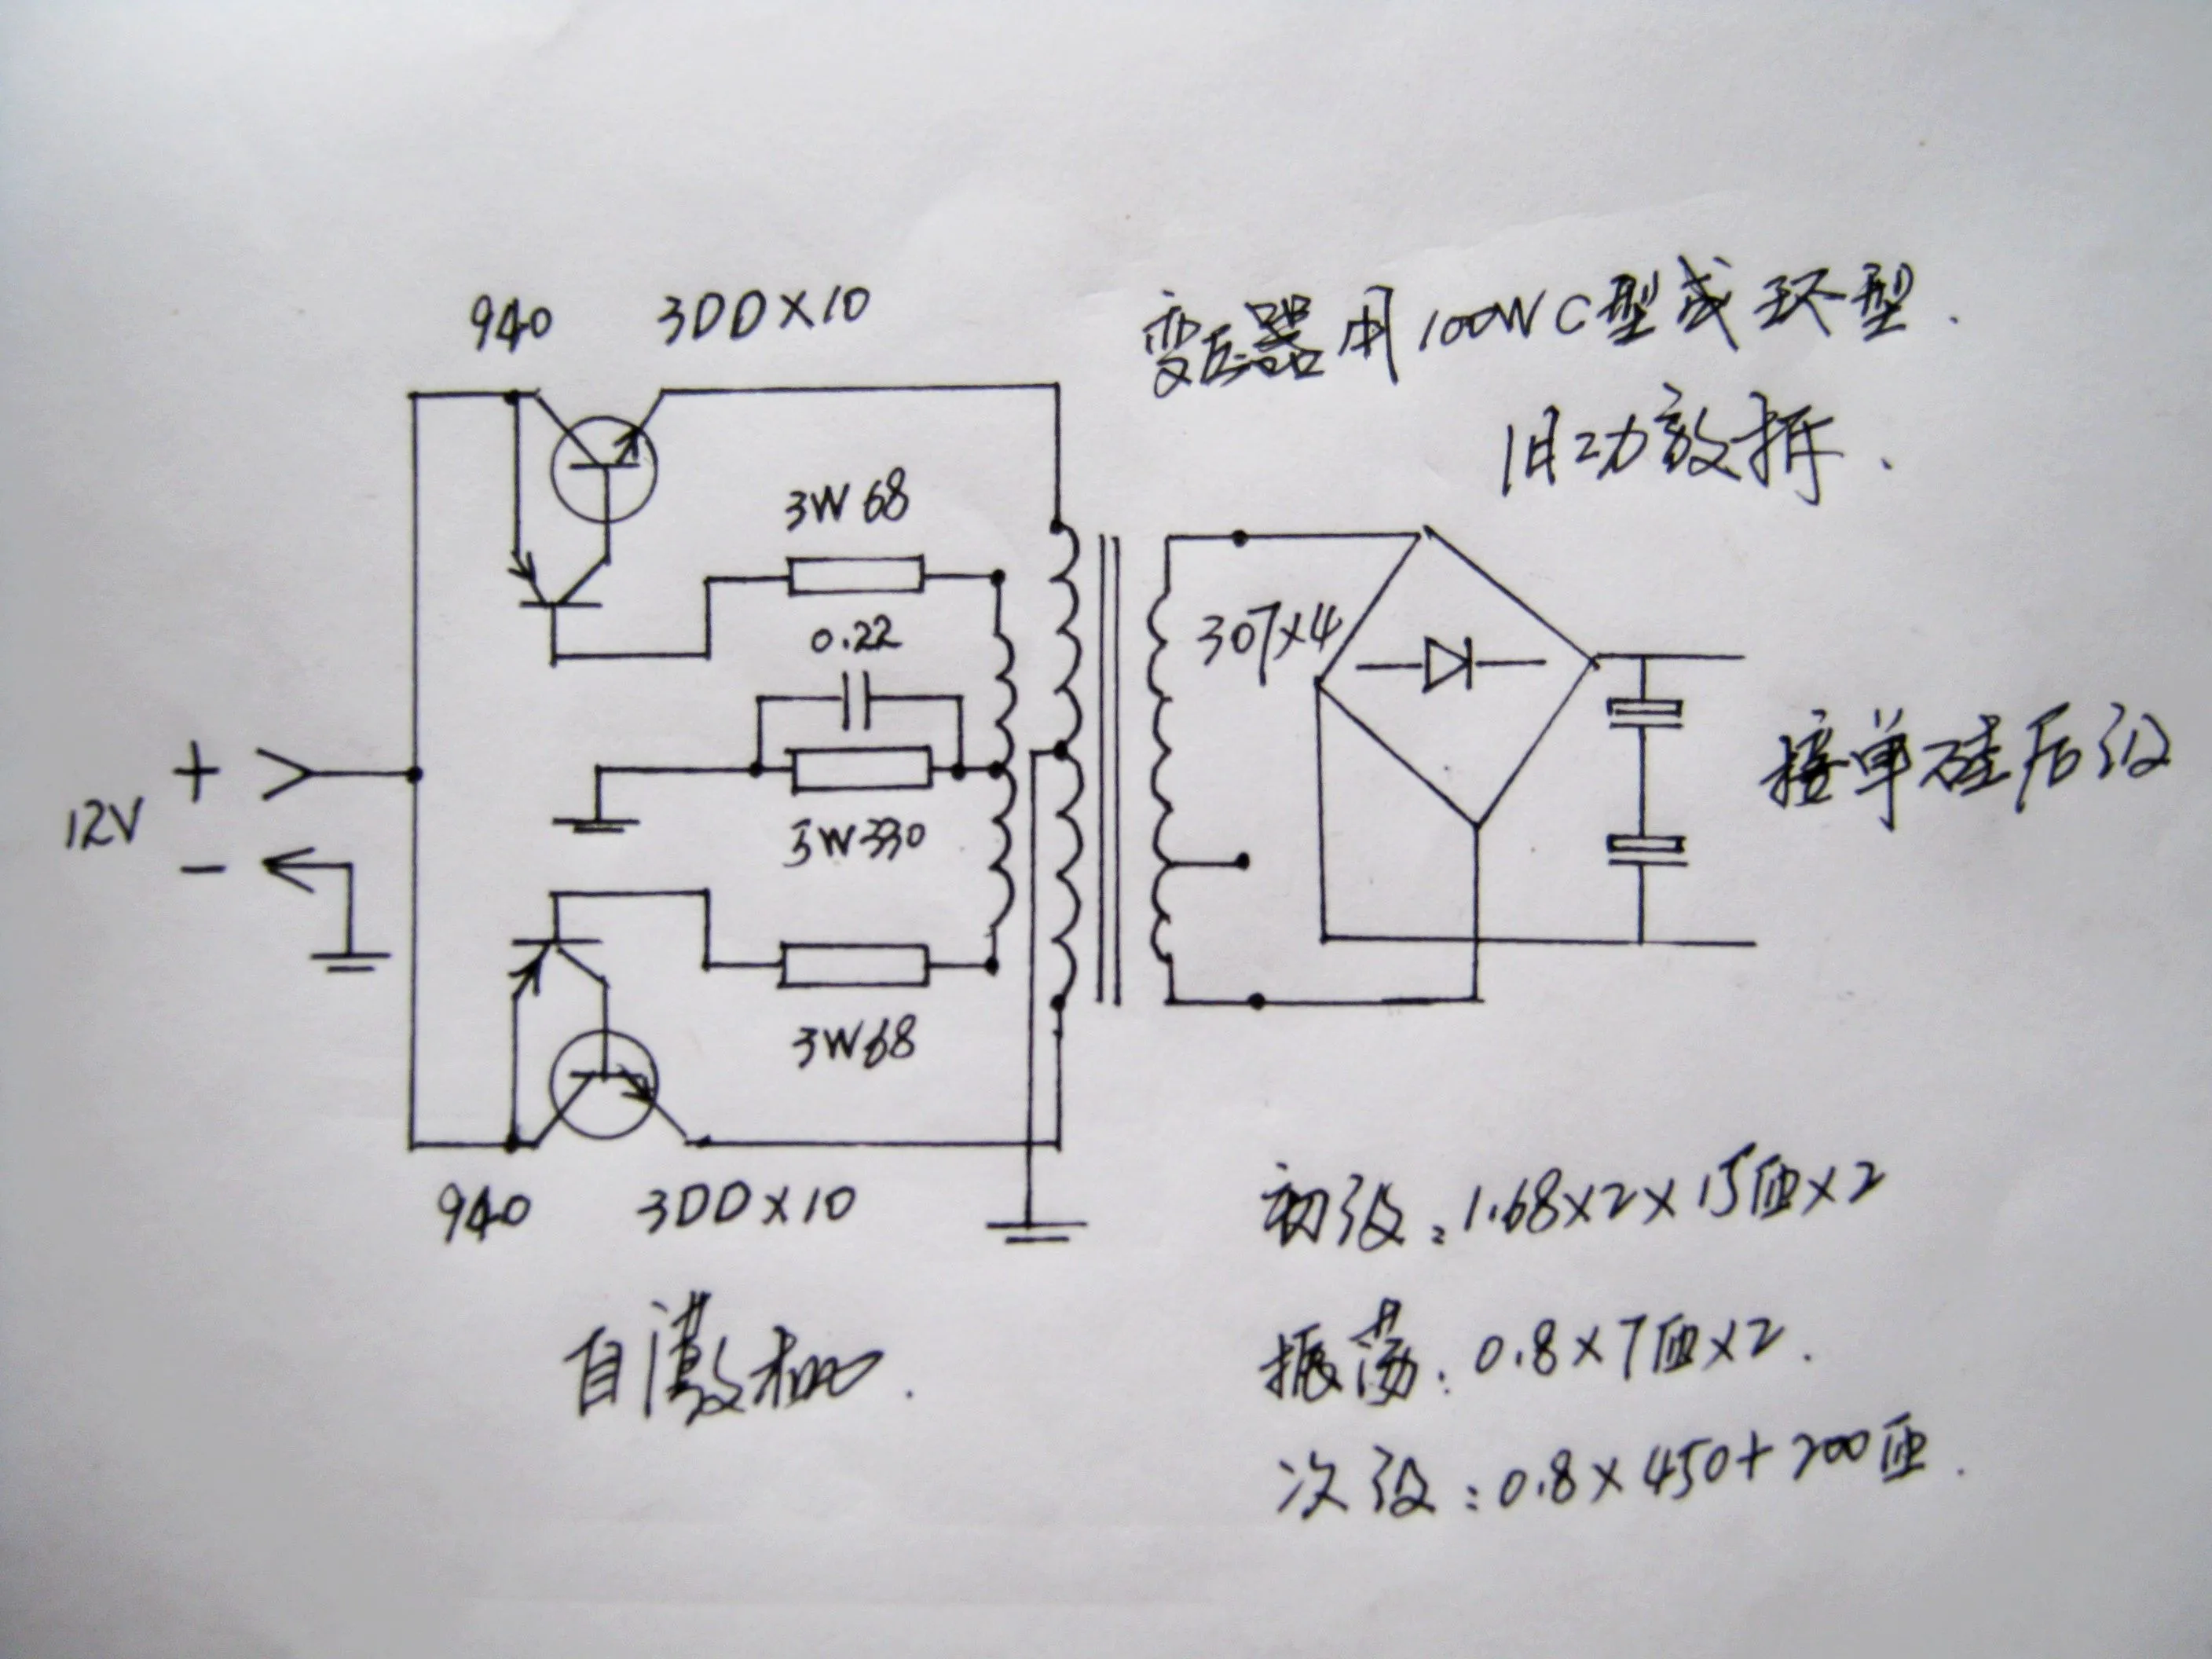 940 3DD×10
变压器用100W C型或环型.
旧功放拆.
3W 68
0.22
307×4
+
12V
-
3W 330
接单硅后级
3W 68
940 3DD×10
初级:1.68×2×15匝×2
自激机.
振荡:0.8×7匝×2.
次级:0.8×450+200匝.